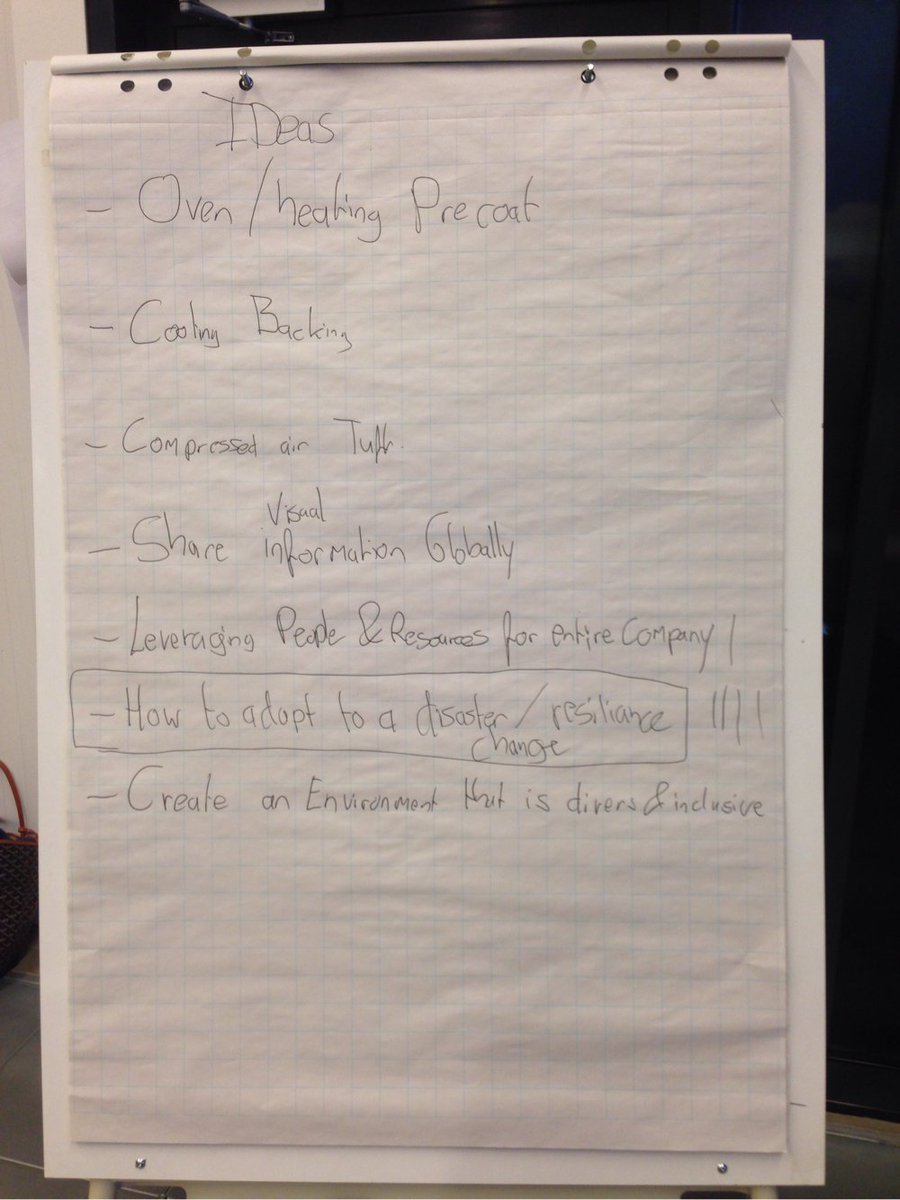 IDeas
- Oven/heating Precoat
- Cooling Backing
- Compressed air Tuft.
Visual
- Share information Globally
- Leveraging People & Resources for entire Company |
- How to adopt to a disaster/resiliance ||||
change
- Create an Environment that is divers & inclusive